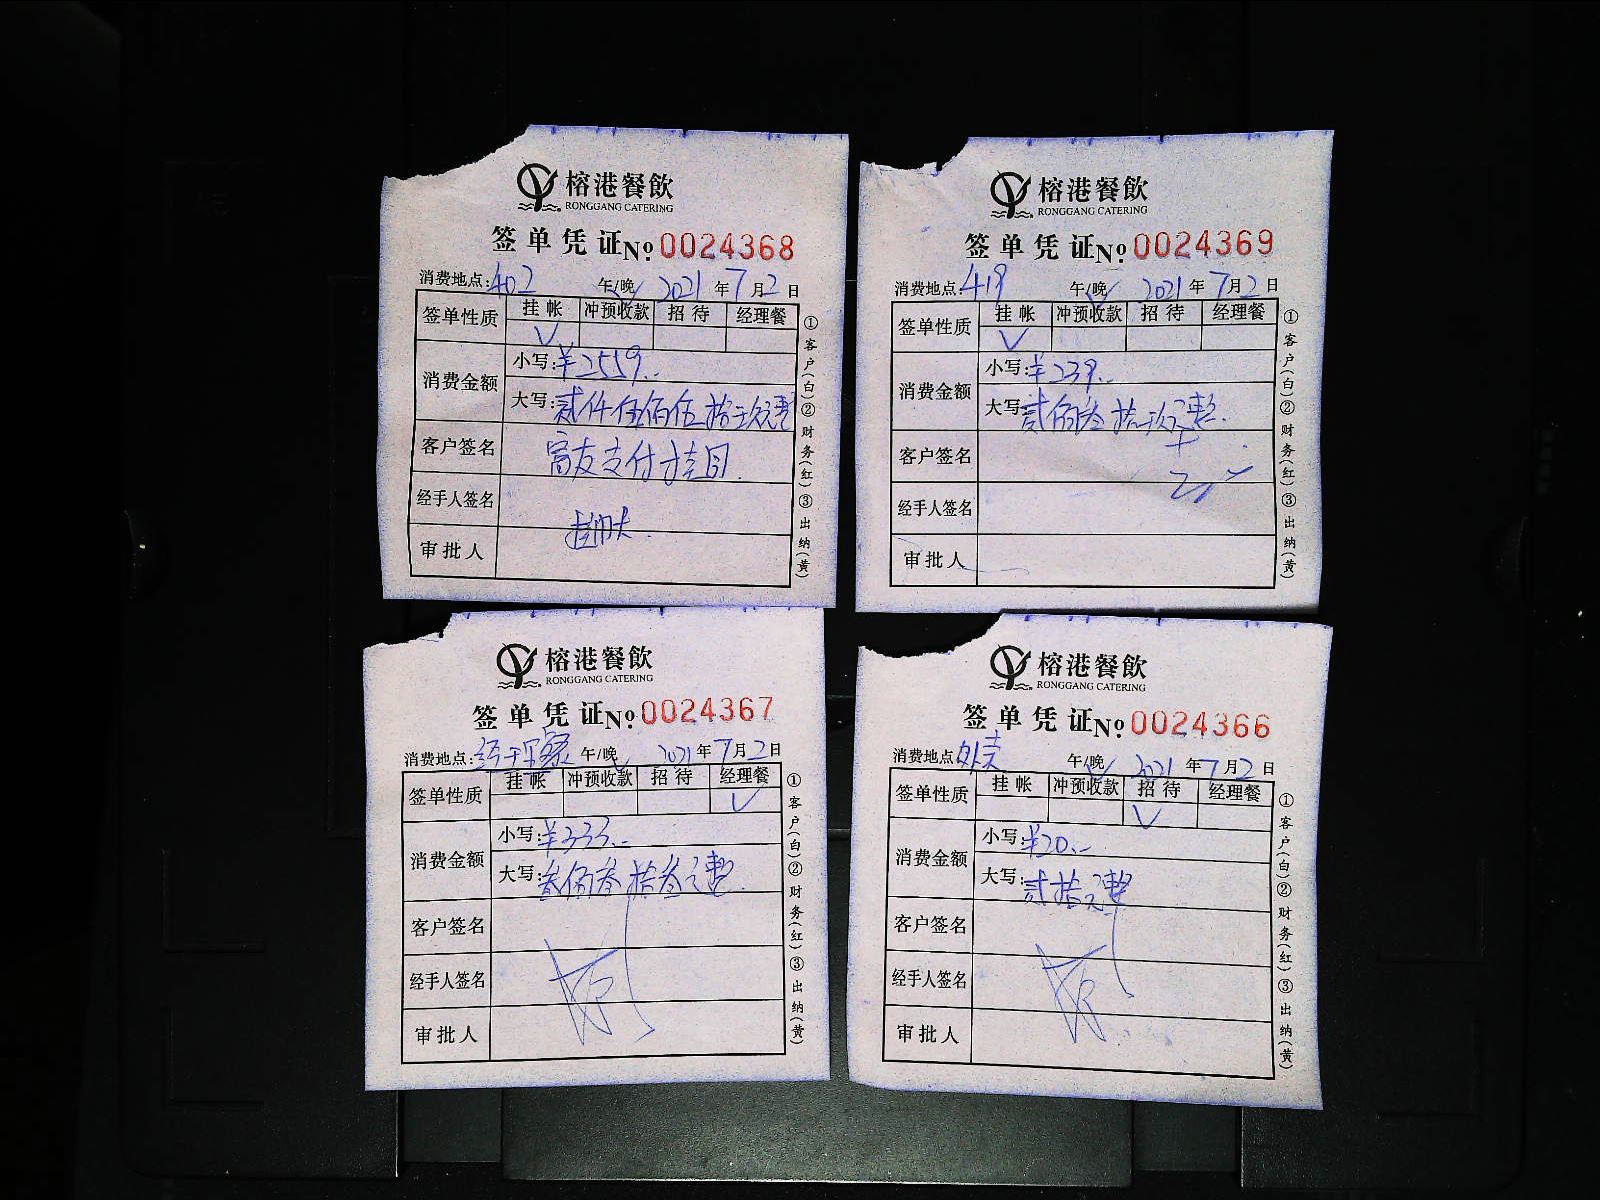 榕港餐飲
RONGGANG CATERING
签单凭证 №0024368
消费地点:402 午/晚 2021年7月2日
签单性质 挂帐 冲预收款 招待 经理餐
✓
消费金额 小写:¥2559.-
大写:贰仟伍佰伍拾玖元整
客户签名
经手人签名
审批人
①客户(白)②财务(红)③出纳(黄)
榕港餐飲
RONGGANG CATERING
签单凭证 №0024369
消费地点:419 午/晚 2021年7月2日
签单性质 挂帐 冲预收款 招待 经理餐
✓
消费金额 小写:¥239.-
大写:贰佰叁拾玖元整
客户签名
经手人签名
审批人
①客户(白)②财务(红)③出纳(黄)
榕港餐飲
RONGGANG CATERING
签单凭证 №0024367
消费地点: 午/晚 2021年7月2日
签单性质 挂帐 冲预收款 招待 经理餐
✓
消费金额 小写:¥333.-
大写:叁佰叁拾叁元整
客户签名
经手人签名
审批人
①客户(白)②财务(红)③出纳(黄)
榕港餐飲
RONGGANG CATERING
签单凭证 №0024366
消费地点:外卖 午/晚 2021年7月2日
签单性质 挂帐 冲预收款 招待 经理餐
✓
消费金额 小写:¥20.-
大写:贰拾元整
客户签名
经手人签名
审批人
①客户(白)②财务(红)③出纳(黄)